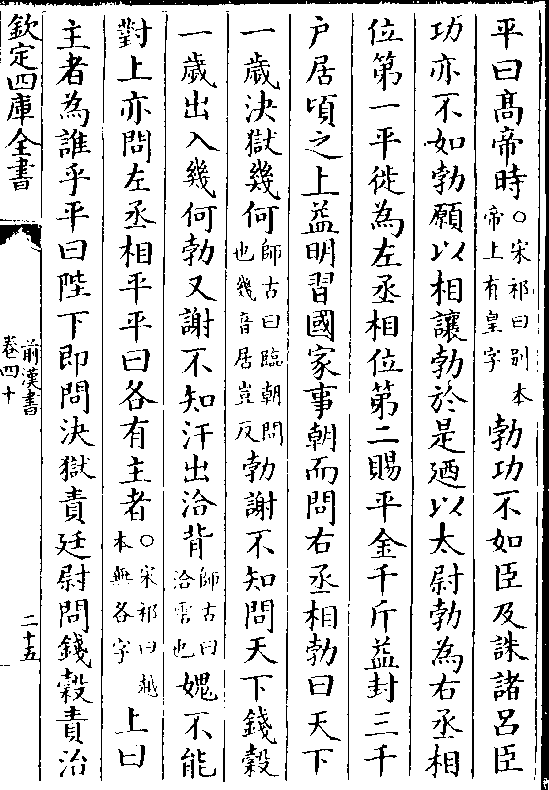 平曰髙帝時○宋祁曰别本帝上有皇字勃功不如臣及誅諸呂臣
功亦不如勃願以相讓勃於是廼以太尉勃為右丞相
位第一平徙為左丞相位第二賜平金千斤益封三千
户居頃之上益明習國家事朝而問右丞相勃曰天下
一歲決獄幾何師古曰臨朝問也幾音居豈反勃謝不知問天下錢穀
一歲出入幾何勃又謝不知汗出洽背師古曰洽霑也媿不能
對上亦問左丞相平平曰各有主者○宋祁曰越本無各字上曰
主者為誰乎平曰陛下即問決獄責廷尉問錢穀責治
欽定四庫全書
前漢書
卷四十
二十五